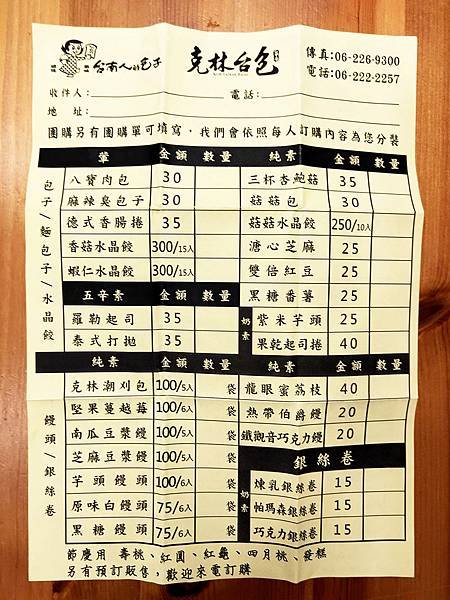 台南人的包子 克林台包 傳真:06-226-9300
電話:06-222-2257
收件人: 電話:
地 址:
團購另有團購單可填寫,我們會依照每人訂購內容為您分裝
包子/麵包子/水晶餃
葷 金額 數量 純素 金額 數量
八寶肉包 30 三杯杏鮑菇 35
麻辣臭包子 30 菇菇包 30
德式香腸捲 35 菇菇水晶餃 250/10入
香菇水晶餃 300/15入 溏心芝麻 25
蝦仁水晶餃 300/15入 雙倍紅豆 25
五辛素 金額 數量 黑糖番薯 25
羅勒起司 35 奶素 紫米芋頭 25
泰式打拋 35 果乾起司捲 40
饅頭/銀絲卷
純素 金額 數量 純素 金額 數量
克林潮刈包 100/5入 袋 龍眼蜜荔枝 40
堅果蔓越莓 100/6入 袋 熱帶伯爵饅 20
南瓜豆漿饅 100/5入 袋 鐵觀音巧克力饅 20
芝麻豆漿饅 100/5入 袋 銀絲卷
芋頭饅頭 100/6入 袋 奶素 煉乳銀絲卷 15
原味白饅頭 75/6入 袋 帕瑪森銀絲卷 15
黑糖饅頭 75/6入 袋 巧克力銀絲卷 15
節慶用 壽桃、紅圓、紅龜、四月桃、發糕
另有預訂販售,歡迎來電訂購